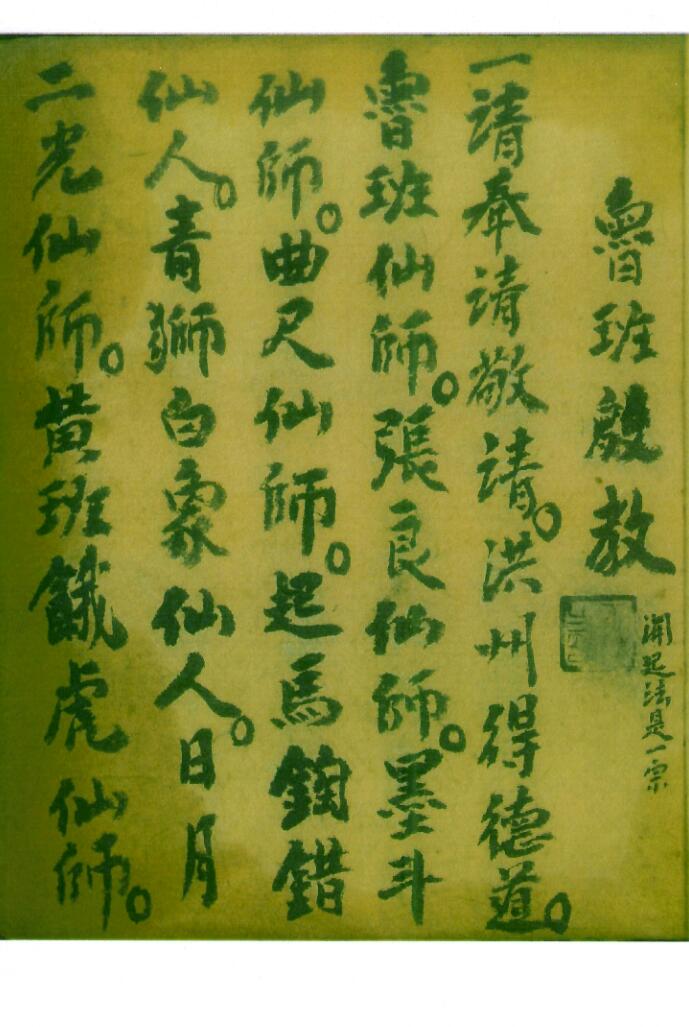 魯班啟教
開起法是一宗
一請奉請敬請。洪州得德道。
魯班仙師。張良仙師。墨斗
仙師。曲尺仙師。起馬鉤錯
仙人。青獅白象仙人。日月
二光仙師。黃班餓虎仙師。